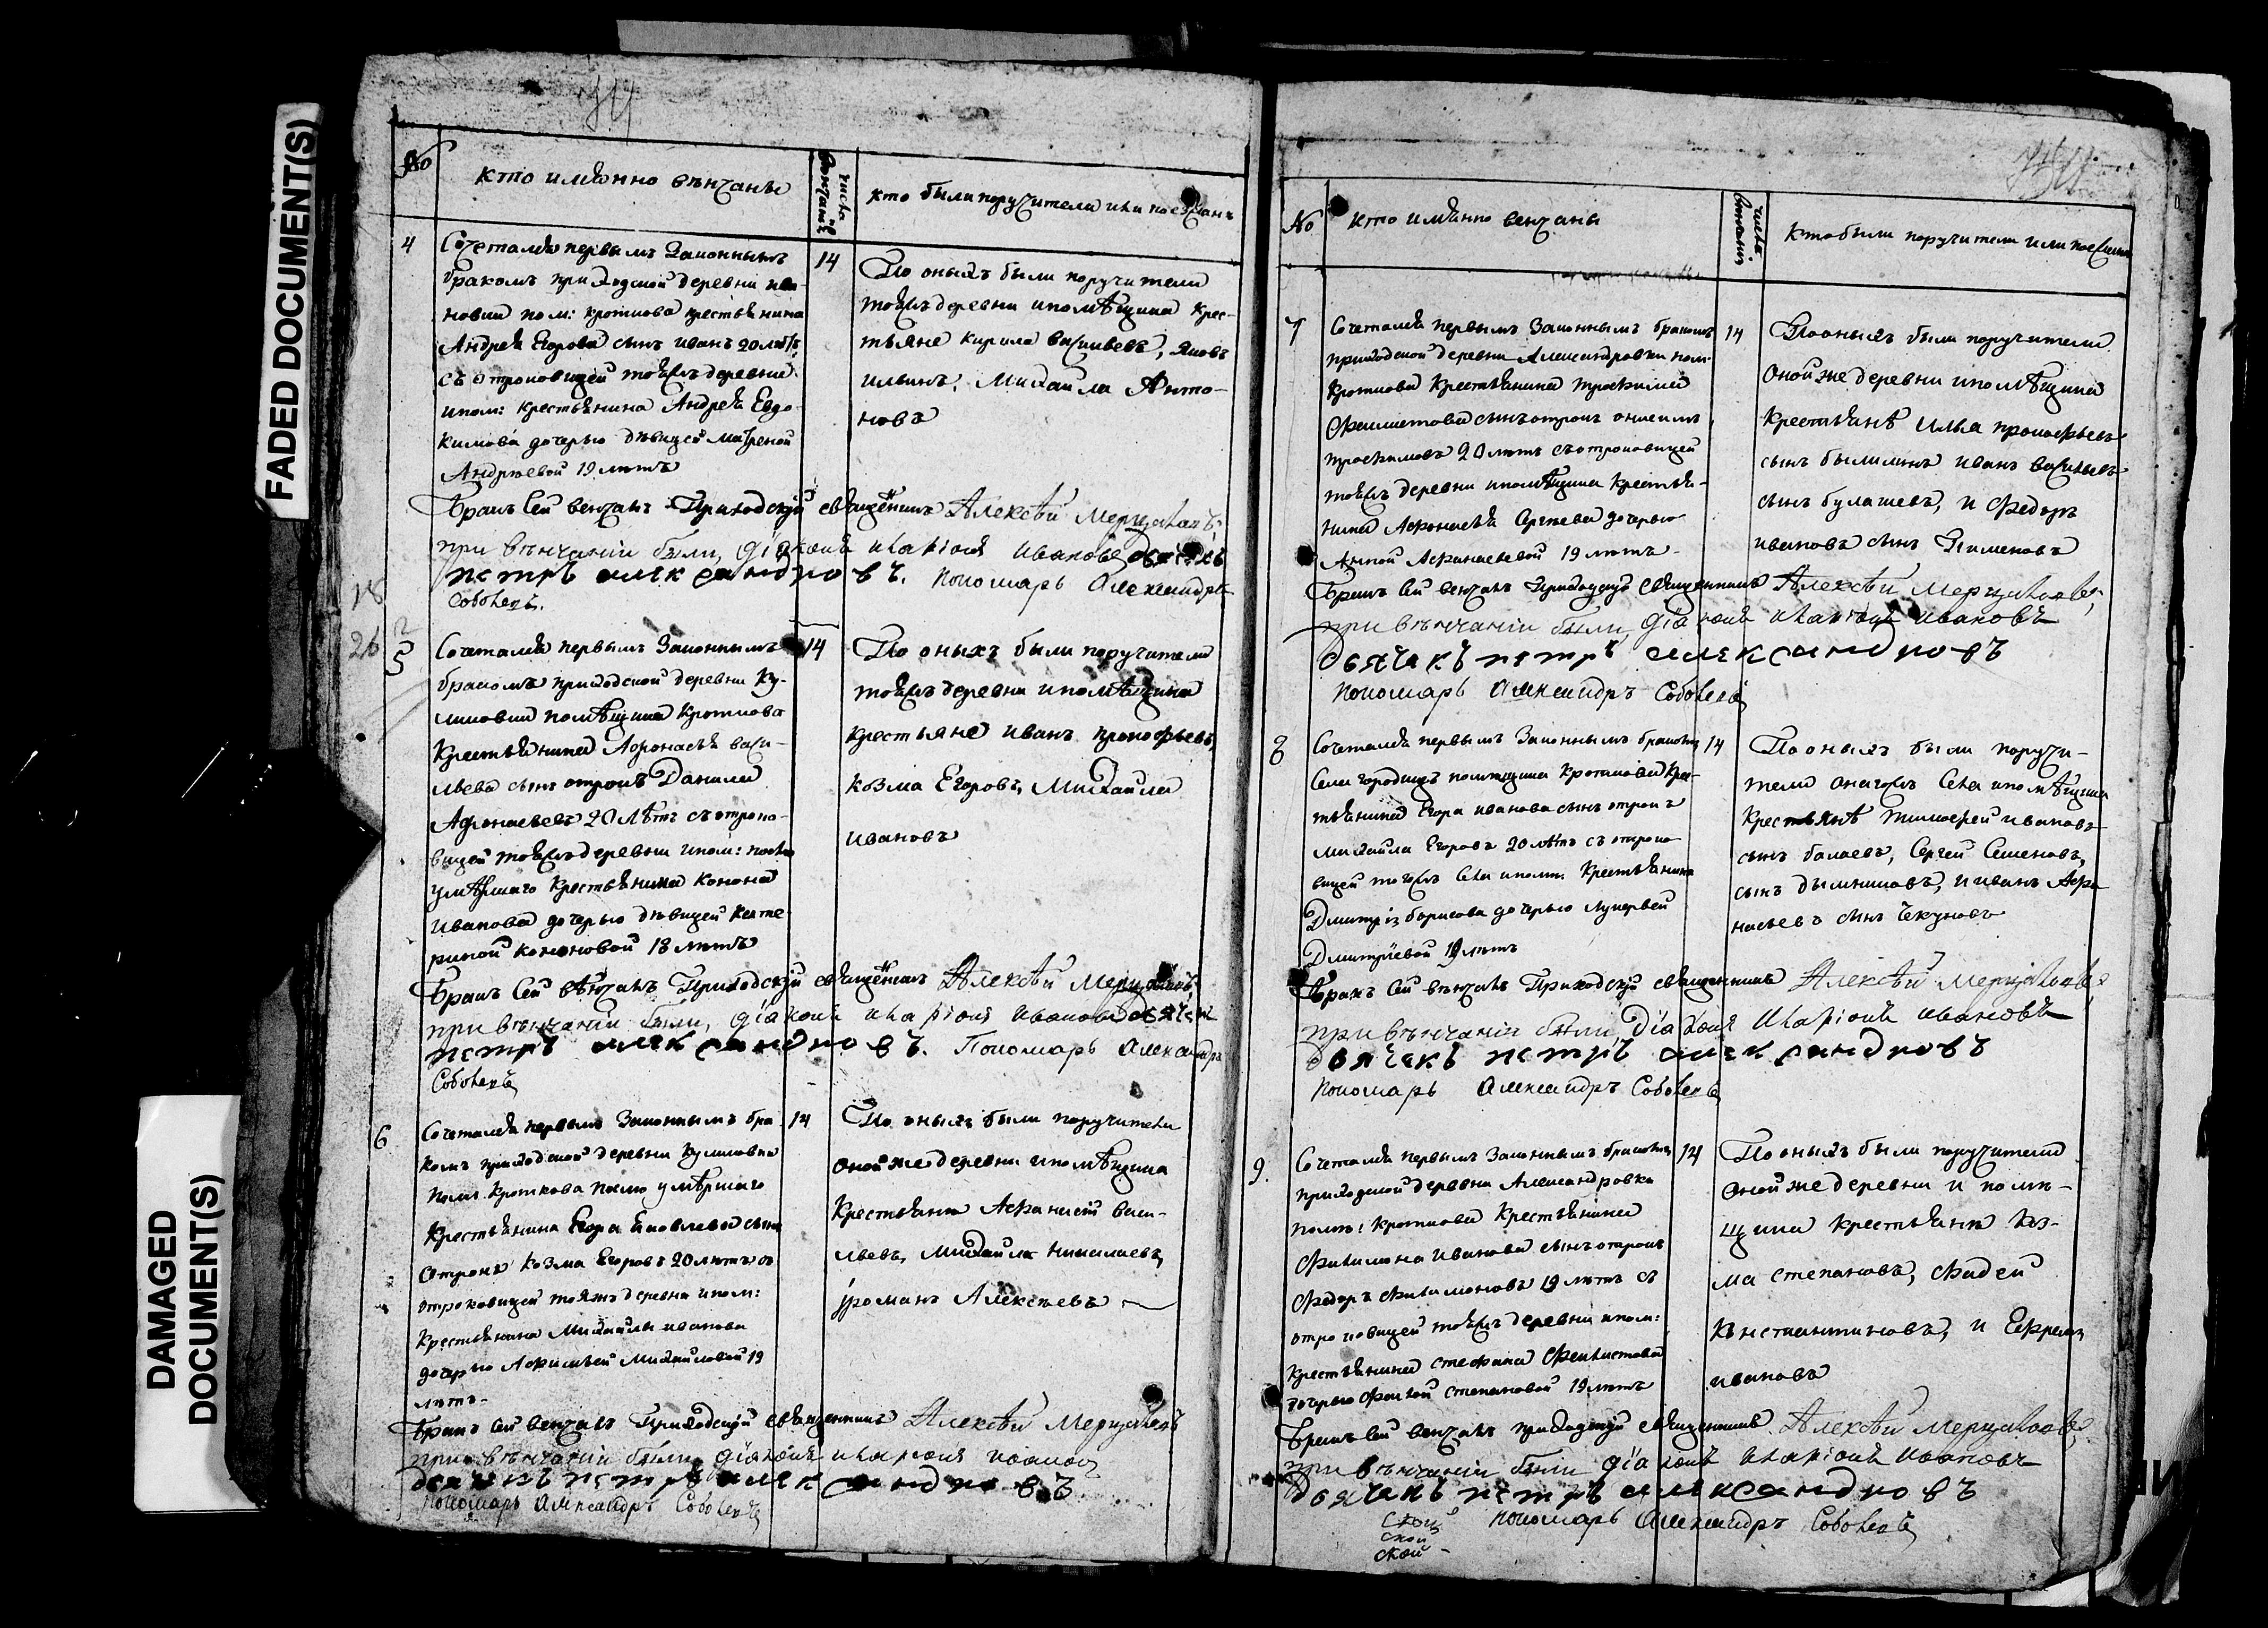 FADED DOCUMENT(S)
DAMAGED
DOCUMENT(S)
№
кто имянно вѣнчаны
число венчанiя
кто были поручители или поезжанъ
4
Сочетался первымъ Законнымъ
бракомъ приходской деревни
пом: кроткова крестьянина
Андрея Егорова сынъ иванъ 20 летъ
съ отроковицей тояжъ деревни
и пом: крестьянина Андрея Евдо-
кимова дочерью дѣвицей матреной
Андреевой 19 летъ
14
По оныхъ были поручители
тояжъ деревни и помѣщика крес-
тьяне кирила васильевъ, яковъ
ильинъ, Михайла Анто-
новъ
Бракъ Сей венчалъ Приходскiй священникъ Алексѣй Мерцаловъ
при вѣнчанiи были, дiаконъ иларiонъ ивановъ дьячекъ
петръ александровъ. пономарь Александръ
Соболевъ.
18
26
5
Сочетался первымъ Законнымъ
бракомъ приходской деревни Ку-
ликовки помѣщика Кроткова
Крестьянина Афонасья васи-
льева сынъ отрокъ Данила
Афонасьевъ 20 лѣтъ съ отроко-
вицей тояжъ деревни и пом: после
умѣршаго Крестьянина Конона
Иванова дочерью дѣвицей Кате-
риной Кононовой 18 летъ
14
По оныхъ были поручители
тояжъ деревни и помѣщика
крестьяне иванъ прокофьевъ,
козма Егоровъ, Михайла
ивановъ
Бракъ Сей вѣнчалъ Приходскiй священникъ Алексѣй Мерцаловъ,
при вѣнчанiи были, дiаконъ иларiонъ ивановъ дьячекъ
петръ александровъ. Пономарь Александръ
Соболевъ
6
Сочетался первымъ Законнымъ бра
комъ приходской деревни Куликовки
пом. Кроткова после умѣршаго
Крестьянина Егора Яковлева сынъ
отрокъ Козма Егоровъ 20 летъ съ
отроковицей тояжъ деревни и пом:
Крестьянина Михайлы иванова
дочерью Афимьей Михайловой 19
летъ.
14
По оныхъ были поручители
оной же деревни и помѣщика
Крестьяне Афанасiй васи-
льевъ, Михайла николаевъ,
романъ Алексеевъ
Бракъ Сей венчалъ Приходскiй священникъ Алексѣй Мерцаловъ
при вѣнчанiи были дiаконъ иларiонъ ивановъ
дьячекъ петръ александровъ
пономарь Александръ Соболевъ
№
кто имянно венчаны
число венчанiя
кто были поручители или
7
Сочетался первымъ Законнымъ бракомъ
приходской деревни Александровки пом.
Кроткова Крестьянина трофима
Феклистова сынъ отрокъ онисимъ
трофимовъ 20 летъ съ отроковицей
тояжъ деревни и помѣщика Крестья-
нина Афонасья Сергеева дочерью
Анной Афанасьевой 19 летъ
14
По оныхъ были поручители
оной же деревни и помѣщика
Крестьянѣ Илья прокофьевъ
сынъ былилинъ иванъ васильевъ
сынъ булашевъ, и Федоръ
ивановъ сынъ Пименовъ
Бракъ Сей венчалъ Приходскiй священникъ Алексѣй Мерцаловъ,
при вѣнчанiи были, дiаконъ иларiонъ ивановъ
дьячекъ петръ александровъ
пономарь Александръ Соболевъ
8
Сочетался первымъ Законнымъ бракомъ
Села городищъ помещика Кроткова Крес-
тьянина Егора иванова сынъ отрокъ
михайла Егоровъ 20 лѣтъ съ отроко-
вицей тогожъ Села и пом. Крестьянина
Дмитрiя борисова дочерью лукерьей
Дмитрiевой 19 летъ
14
По оныхъ были поручи-
тели онагожъ Села и помѣщика
Крестьянѣ тимофей ивановъ
сынъ балаевъ, Сергей Семеновъ,
сынъ дымниковъ, и иванъ Афа
насьевъ сынъ Чекуновъ
Бракъ Сей вѣнчалъ Приходскiй священникъ Алексѣй Мерцаловъ
при вѣнчанiи были, Дiаконъ Иларiонъ ивановъ
дьячекъ петръ александровъ
пономарь Александръ Соболевъ
9.
Сочетался первымъ Законнымъ бракомъ
приходской деревни Александровки
пом: Кроткова Крестьянина
Филимона Иванова сынъ отрокъ
Федоръ Филимоновъ 19 летъ съ
отроковицей тояжъ деревни и пом:
Крестьянина стефана Феклистова
дочерью Феклой степановой 19 летъ
14
По оныхъ были поручители
оной же деревни и поме-
щика крестьяне Коз-
ма степановъ, Фадей
Кнстантиновъ, и Ефремъ
ивановъ
Бракъ Сей венчалъ приходскiй священникъ Алексѣй Мерцаловъ
при вѣнчанiи были дiаконъ иларiонъ ивановъ
дьячекъ петръ александровъ
пономарь Александръ Соболевъ
ской
ской